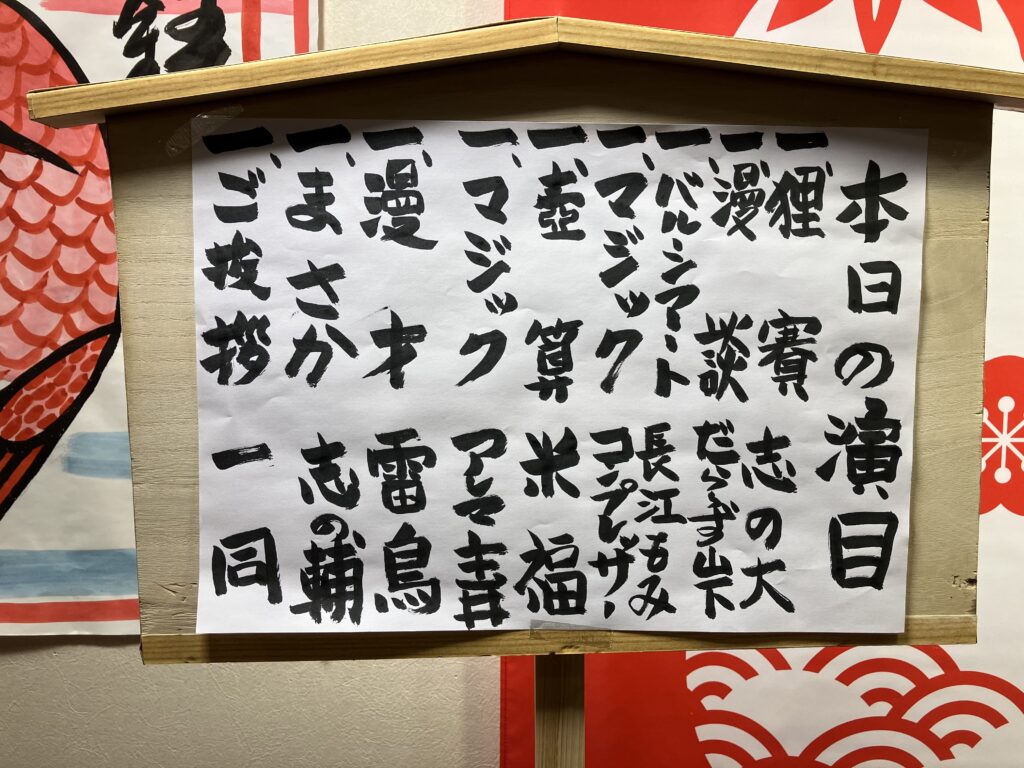 本日の演目
一、狸賽 志の大
一、漫談 だらず山下
一、バルーンアート 長江もみ
一、マジック コンプレッサー
一、壺算 米福
一、マジック アレマ
一、漫才 雷鳥
一、まさか 志の輔
一、ご挨拶 一同